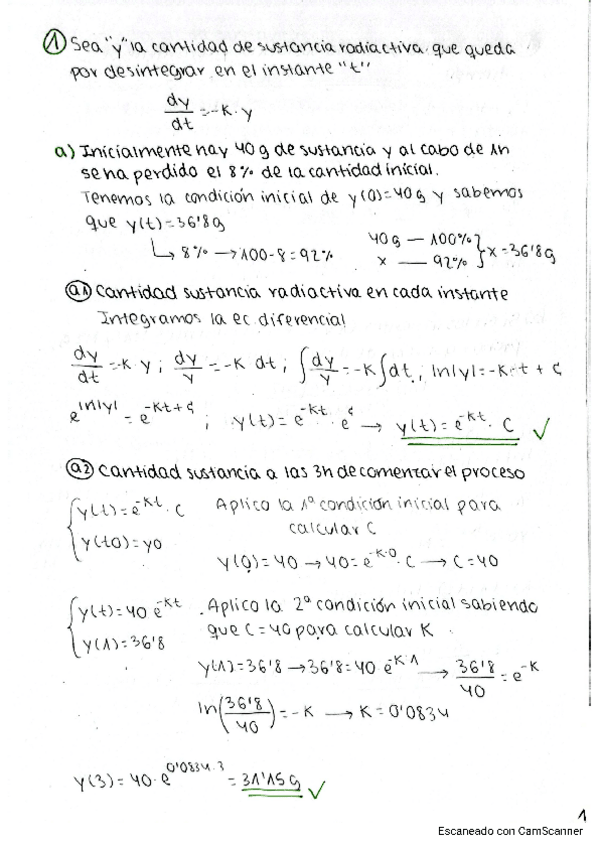 ① Sea "y" la cantidad de sustancia radiactiva que queda
por desintegrar en el instante "t"
dy/dt = -K · y
a) Inicialmente hay 40 g de sustancia y al cabo de 1h
se ha perdido el 8% de la cantidad inicial.
Tenemos la condición inicial de y(0)=40g y sabemos
que y(t)=36'8g
↳ 8% → 100-8=92%
40g — 100% } x=36'8g
x — 92%
a1 Cantidad sustancia radiactiva en cada instante
Integramos la ec. diferencial
dy/dt = -K y ; dy/y = -K dt ; ∫ dy/y = -K ∫ dt ; ln|y| = -K·t + C
e^ln|y| = e^-Kt+C ; y(t) = e^-Kt · e^C → y(t) = e^-Kt · C ✓
a2 Cantidad sustancia a las 3h de comenzar el proceso
{ y(t) = e^-Kt · C Aplico la 1ª condición inicial para
y(t0) = y0 calcular C
y(0) = 40 → 40 = e^-K·0 · C → C = 40
{ y(t) = 40 e^-Kt . Aplico la 2ª condición inicial sabiendo
y(1) = 36'8 que C = 40 para calcular K.
y(1) = 36'8 → 36'8 = 40 e^K·1 → 36'8/40 = e^-K
ln(36'8/40) = -K → K = 0'0834
y(3) = 40 · e^0'0834·3 = 31'15 g ✓
1
Escaneado con CamScanner